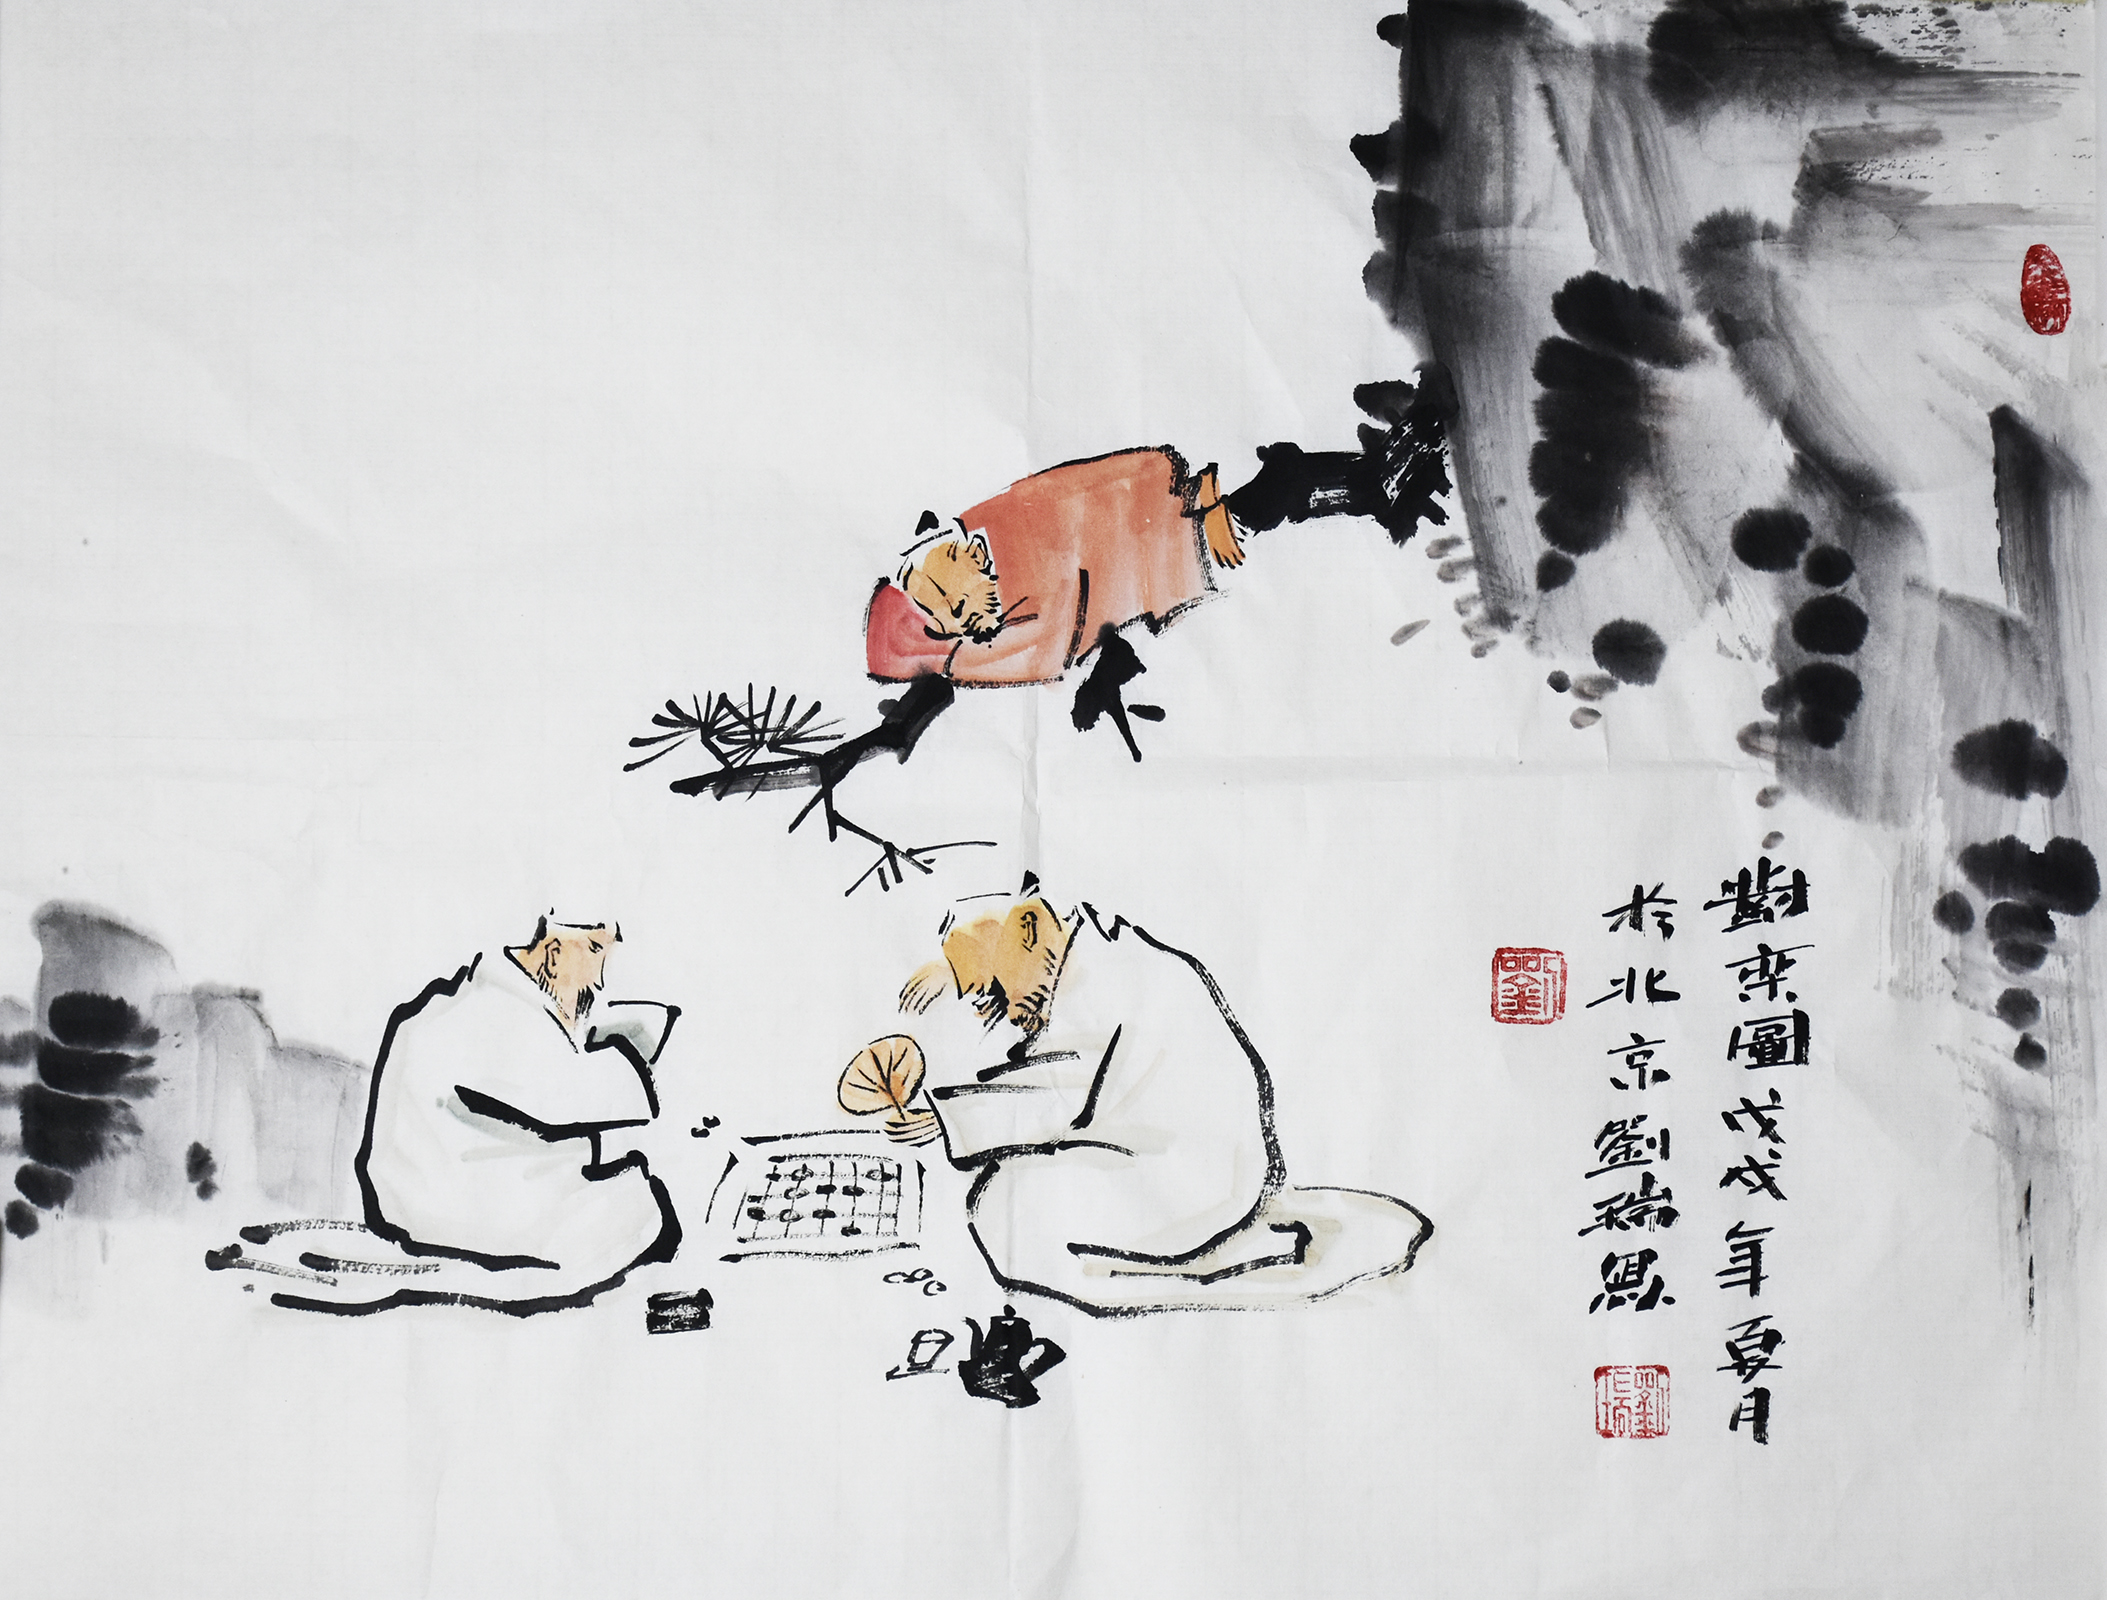 對奕圖戊戌年夏月
於北京劉瑞
劉